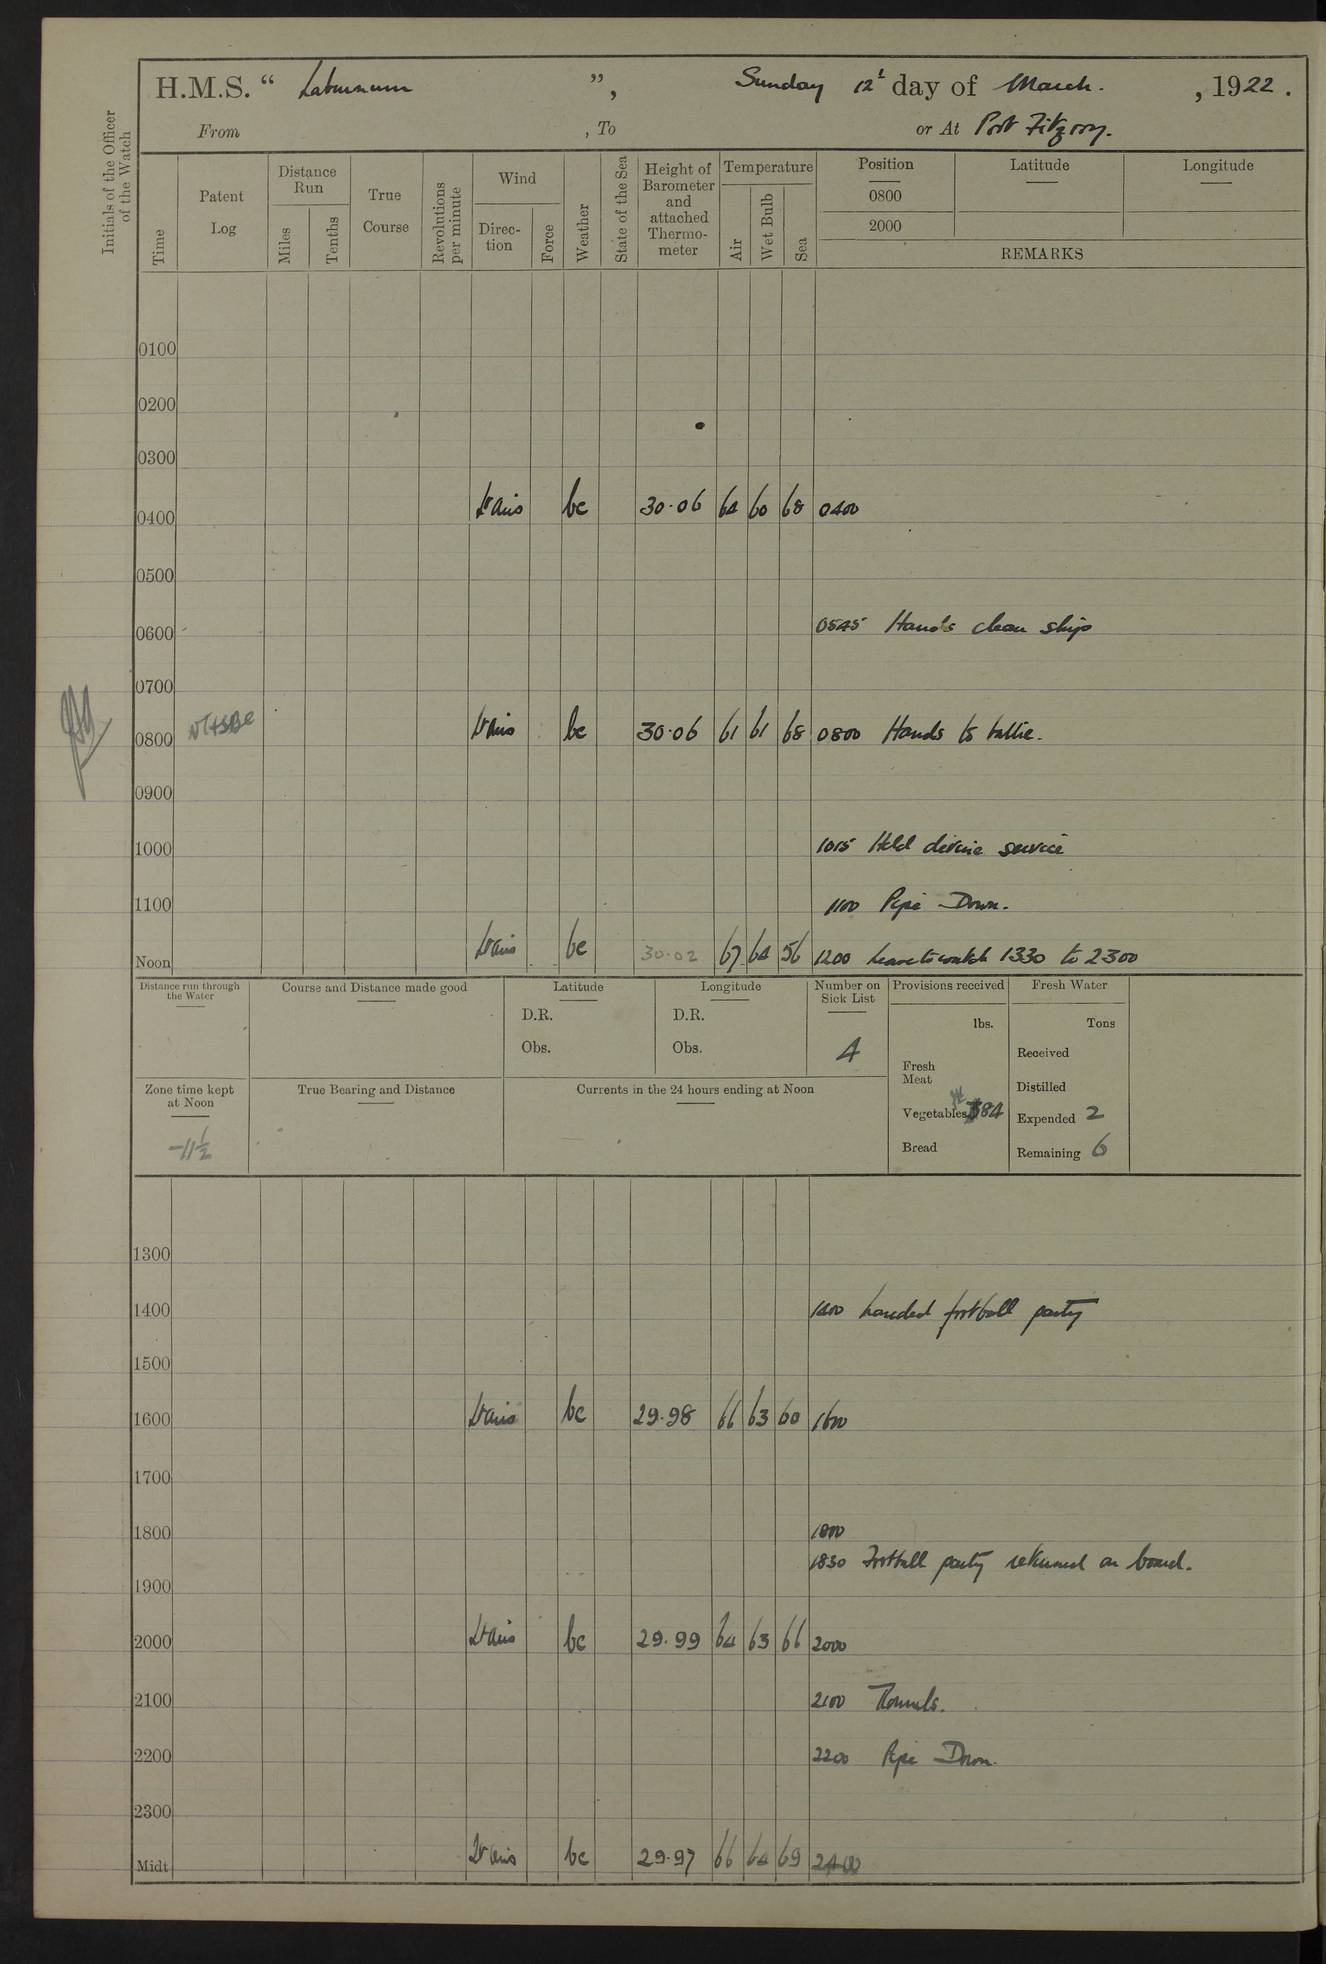 H.M.S. “ Laburnum ”, Sunday 12t day of March. , 1922.
From , To or At Port Fitzroy.
Initials of the Officer of the Watch
Time
Patent Log
Distance Run
Miles
Tenths
True Course
Revolutions per minute
Wind
Direc-tion
Force
Weather
State of the Sea
Height of Barometer and attached Thermo-meter
Temperature
Air
Wet Bulb
Sea
Position Latitude Longitude
0800
2000
REMARKS
0100
0200
0300
0400 Lt airs bc 30.06 64 60 68 0400
0500
0600 0545 Hands clean ship
0700
0800 Lt airs bc 30.06 61 61 68 0800 Hands to bathe.
0900
1000 1015 Held divine service
1100 1100 Pipe Down.
Noon Lt airs bc 30.02 67 64 56 1200 Leave to watch 1330 to 2300
Distance run through the Water
Course and Distance made good
Latitude
D.R.
Obs.
Longitude
D.R.
Obs.
Number on Sick List
4
Provisions received
lbs.
Fresh Meat
Vegetables 84
Bread
Fresh Water
Tons
Received
Distilled
Expended 2
Remaining 6
Zone time kept at Noon
-11½
True Bearing and Distance
Currents in the 24 hours ending at Noon
1300
1400 1400 Landed football party
1500
1600 Lt airs bc 29.98 66 63 60 1600
1700
1800 1800
1830 Football party returned on board.
1900
2000 Lt airs bc 29.99 64 63 66 2000
2100 2100 Rounds.
2200 2200 Pipe Down.
2300
Midt Lt airs bc 29.97 66 64 69 2400